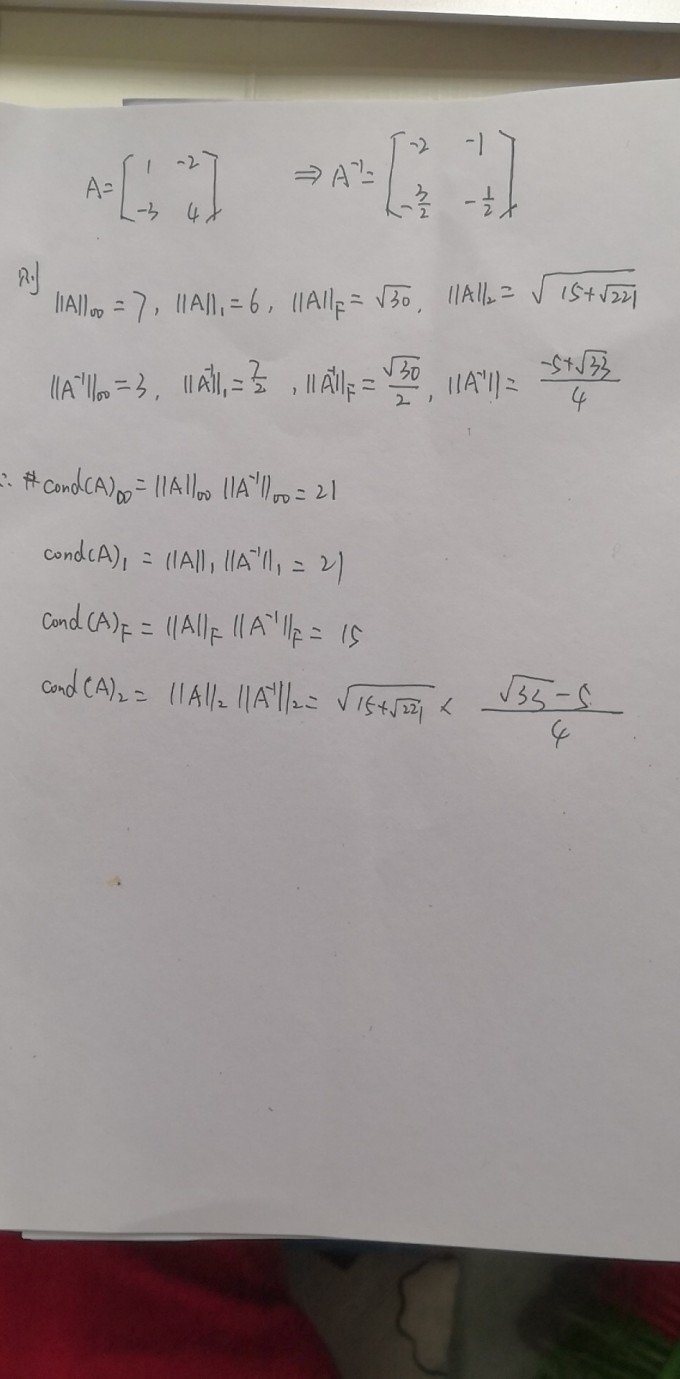 A = [1 -2; -3 4] ⇒ A⁻¹ = [-2 -1; -3/2 -1/2]
则
||A||∞ = 7, ||A||₁ = 6, ||A||F = √30, ||A||₂ = √(15+√221)
||A⁻¹||∞ = 3, ||A⁻¹||₁ = 7/2, ||A⁻¹||F = √30/2, ||A⁻¹|| = (-5+√33)/4
∴ cond(A)∞ = ||A||∞ ||A⁻¹||∞ = 21
cond(A)₁ = ||A||₁ ||A⁻¹||₁ = 21
cond(A)F = ||A||F ||A⁻¹||F = 15
cond(A)₂ = ||A||₂ ||A⁻¹||₂ = √(15+√221) × (√33-5)/4